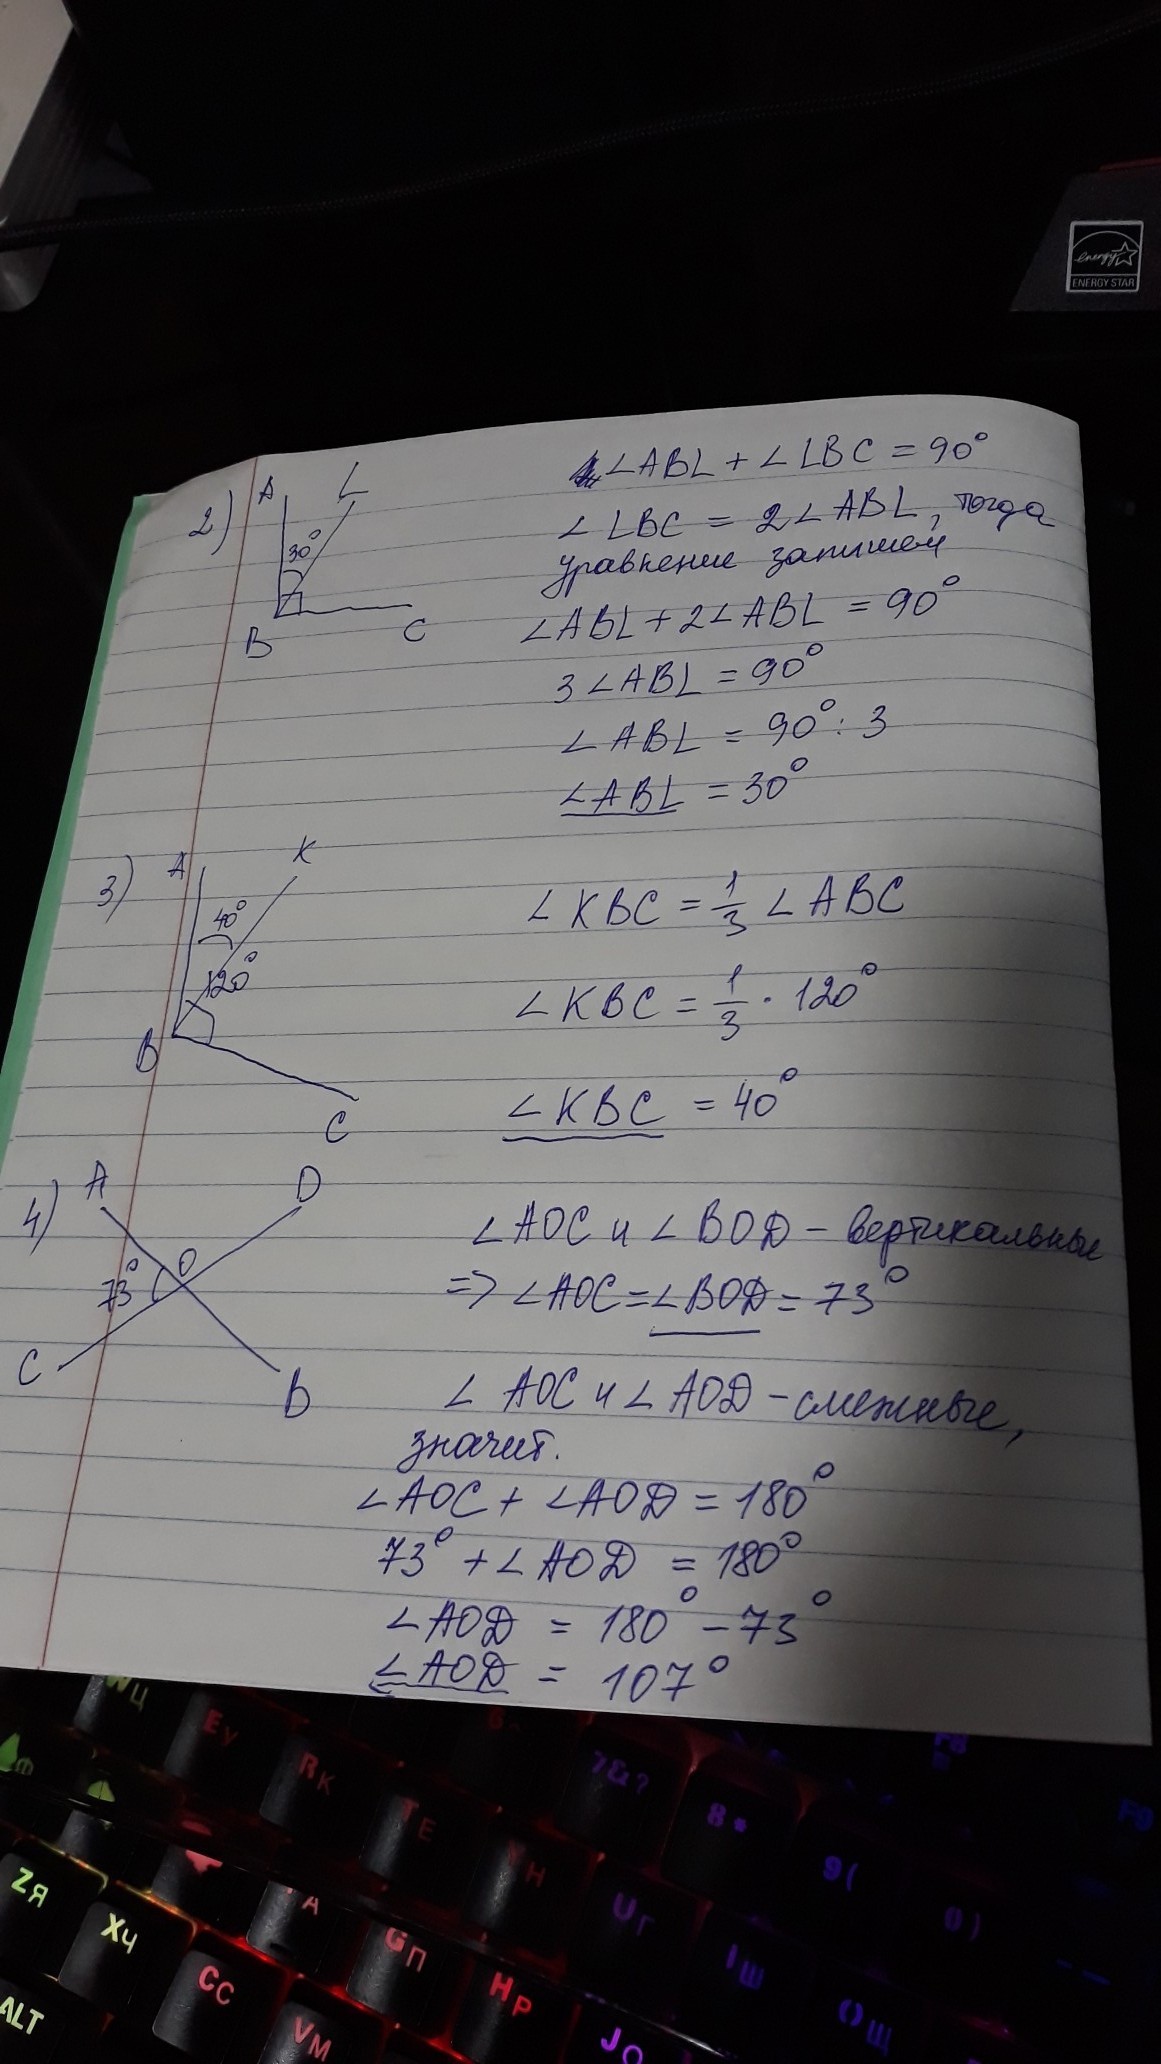 energy
ENERGY STAR
2)
A
L
30°
B
C
∠ABL + ∠LBC = 90°
∠LBC = 2∠ABL, тогда
уравнение запишем
∠ABL + 2∠ABL = 90°
3∠ABL = 90°
∠ABL = 90° : 3
∠ABL = 30°
3)
A
K
40°
120°
B
C
∠KBC = 1/3 ∠ABC
∠KBC = 1/3 · 120°
∠KBC = 40°
4)
A
D
73°
O
C
B
∠AOC и ∠BOD - вертикальные
=> ∠AOC = ∠BOD = 73°
∠AOC и ∠AOD - смежные,
значит.
∠AOC + ∠AOD = 180°
73° + ∠AOD = 180°
∠AOD = 180° - 73°
∠AOD = 107°
WЦ
EУ
RК
TЕ
YН
6
7&?
8*
9(
0)
F8
F9
Ф
А
GП
HР
UГ
IШ
OЩ
JО
ZЯ
XЧ
CС
VМ
ALT